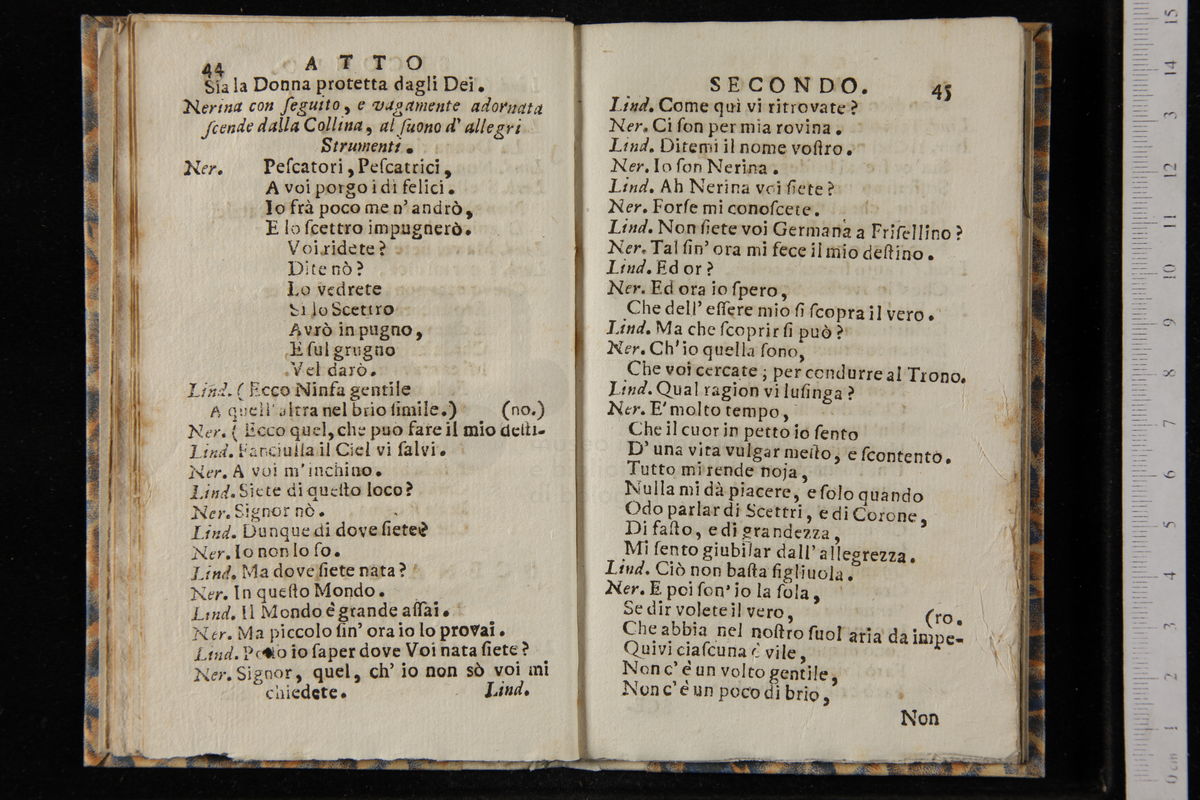 44 ATTO
Sia la Donna protetta dagli Dei.
Nerina con ſeguito, e vagamente adornata
ſcende dalla Collina, al ſuono d' allegri
Strumenti.
Ner. Peſcatori, Peſcatrici,
A voi porgo i dì felici.
Io frà poco me n' andrò,
E lo ſcettro impugnerò.
Voi ridete?
Dite nò?
Lo vedrete
Sì lo Scettro
Avrò in pugno,
E ſul grugno
Vel darò.
Lind. ( Ecco Ninfa gentile
A quell' altra nel brio ſimile.) (no.)
Ner. ( Ecco quel, che puo fare il mio deſti-
Lind. Fanciulla il Ciel vi ſalvi.
Ner. A voi m' inchino.
Lind. Siete di queſto loco?
Ner. Signor nò.
Lind. Dunque di dove ſiete?
Ner. Io non lo ſo.
Lind. Ma dove ſiete nata?
Ner. In queſto Mondo.
Lind. Il Mondo è grande aſſai.
Ner. Ma piccolo ſin' ora io lo provai.
Lind. Poſſo io ſaper dove Voi nata ſiete?
Ner. Signor, quel, ch' io non sò voi mi
chiedete. Lind.
SECONDO. 45
Lind. Come quì vi ritrovate?
Ner. Ci ſon per mia rovina.
Lind. Ditemi il nome voſtro.
Ner. Io ſon Nerina.
Lind. Ah Nerina voi ſiete?
Ner. Forſe mi conoſcete.
Lind. Non ſiete voi Germana a Friſellino?
Ner. Tal ſin' ora mi fece il mio deſtino.
Lind. Ed or?
Ner. Ed ora io ſpero,
Che dell' eſſere mio ſi ſcopra il vero.
Lind. Ma che ſcoprir ſi può?
Ner. Ch' io quella ſono,
Che voi cercate; per condurre al Trono.
Lind. Qual ragion vi luſinga?
Ner. E' molto tempo,
Che il cuor in petto io ſento
D' una vita vulgar meſto, e ſcontento.
Tutto mi rende noja,
Nulla mi dà piacere, e ſolo quando
Odo parlar di Scettri, e di Corone,
Di faſto, e di grandezza,
Mi ſento giubilar dall' allegrezza.
Lind. Ciò non baſta figliuola.
Ner. E poi ſon' io la ſola,
Se dir volete il vero, (ro.
Che abbia nel noſtro ſuol aria da impe-
Quivi ciaſcuna è vile,
Non c' è un volto gentile,
Non c' è un poco di brio,
Non